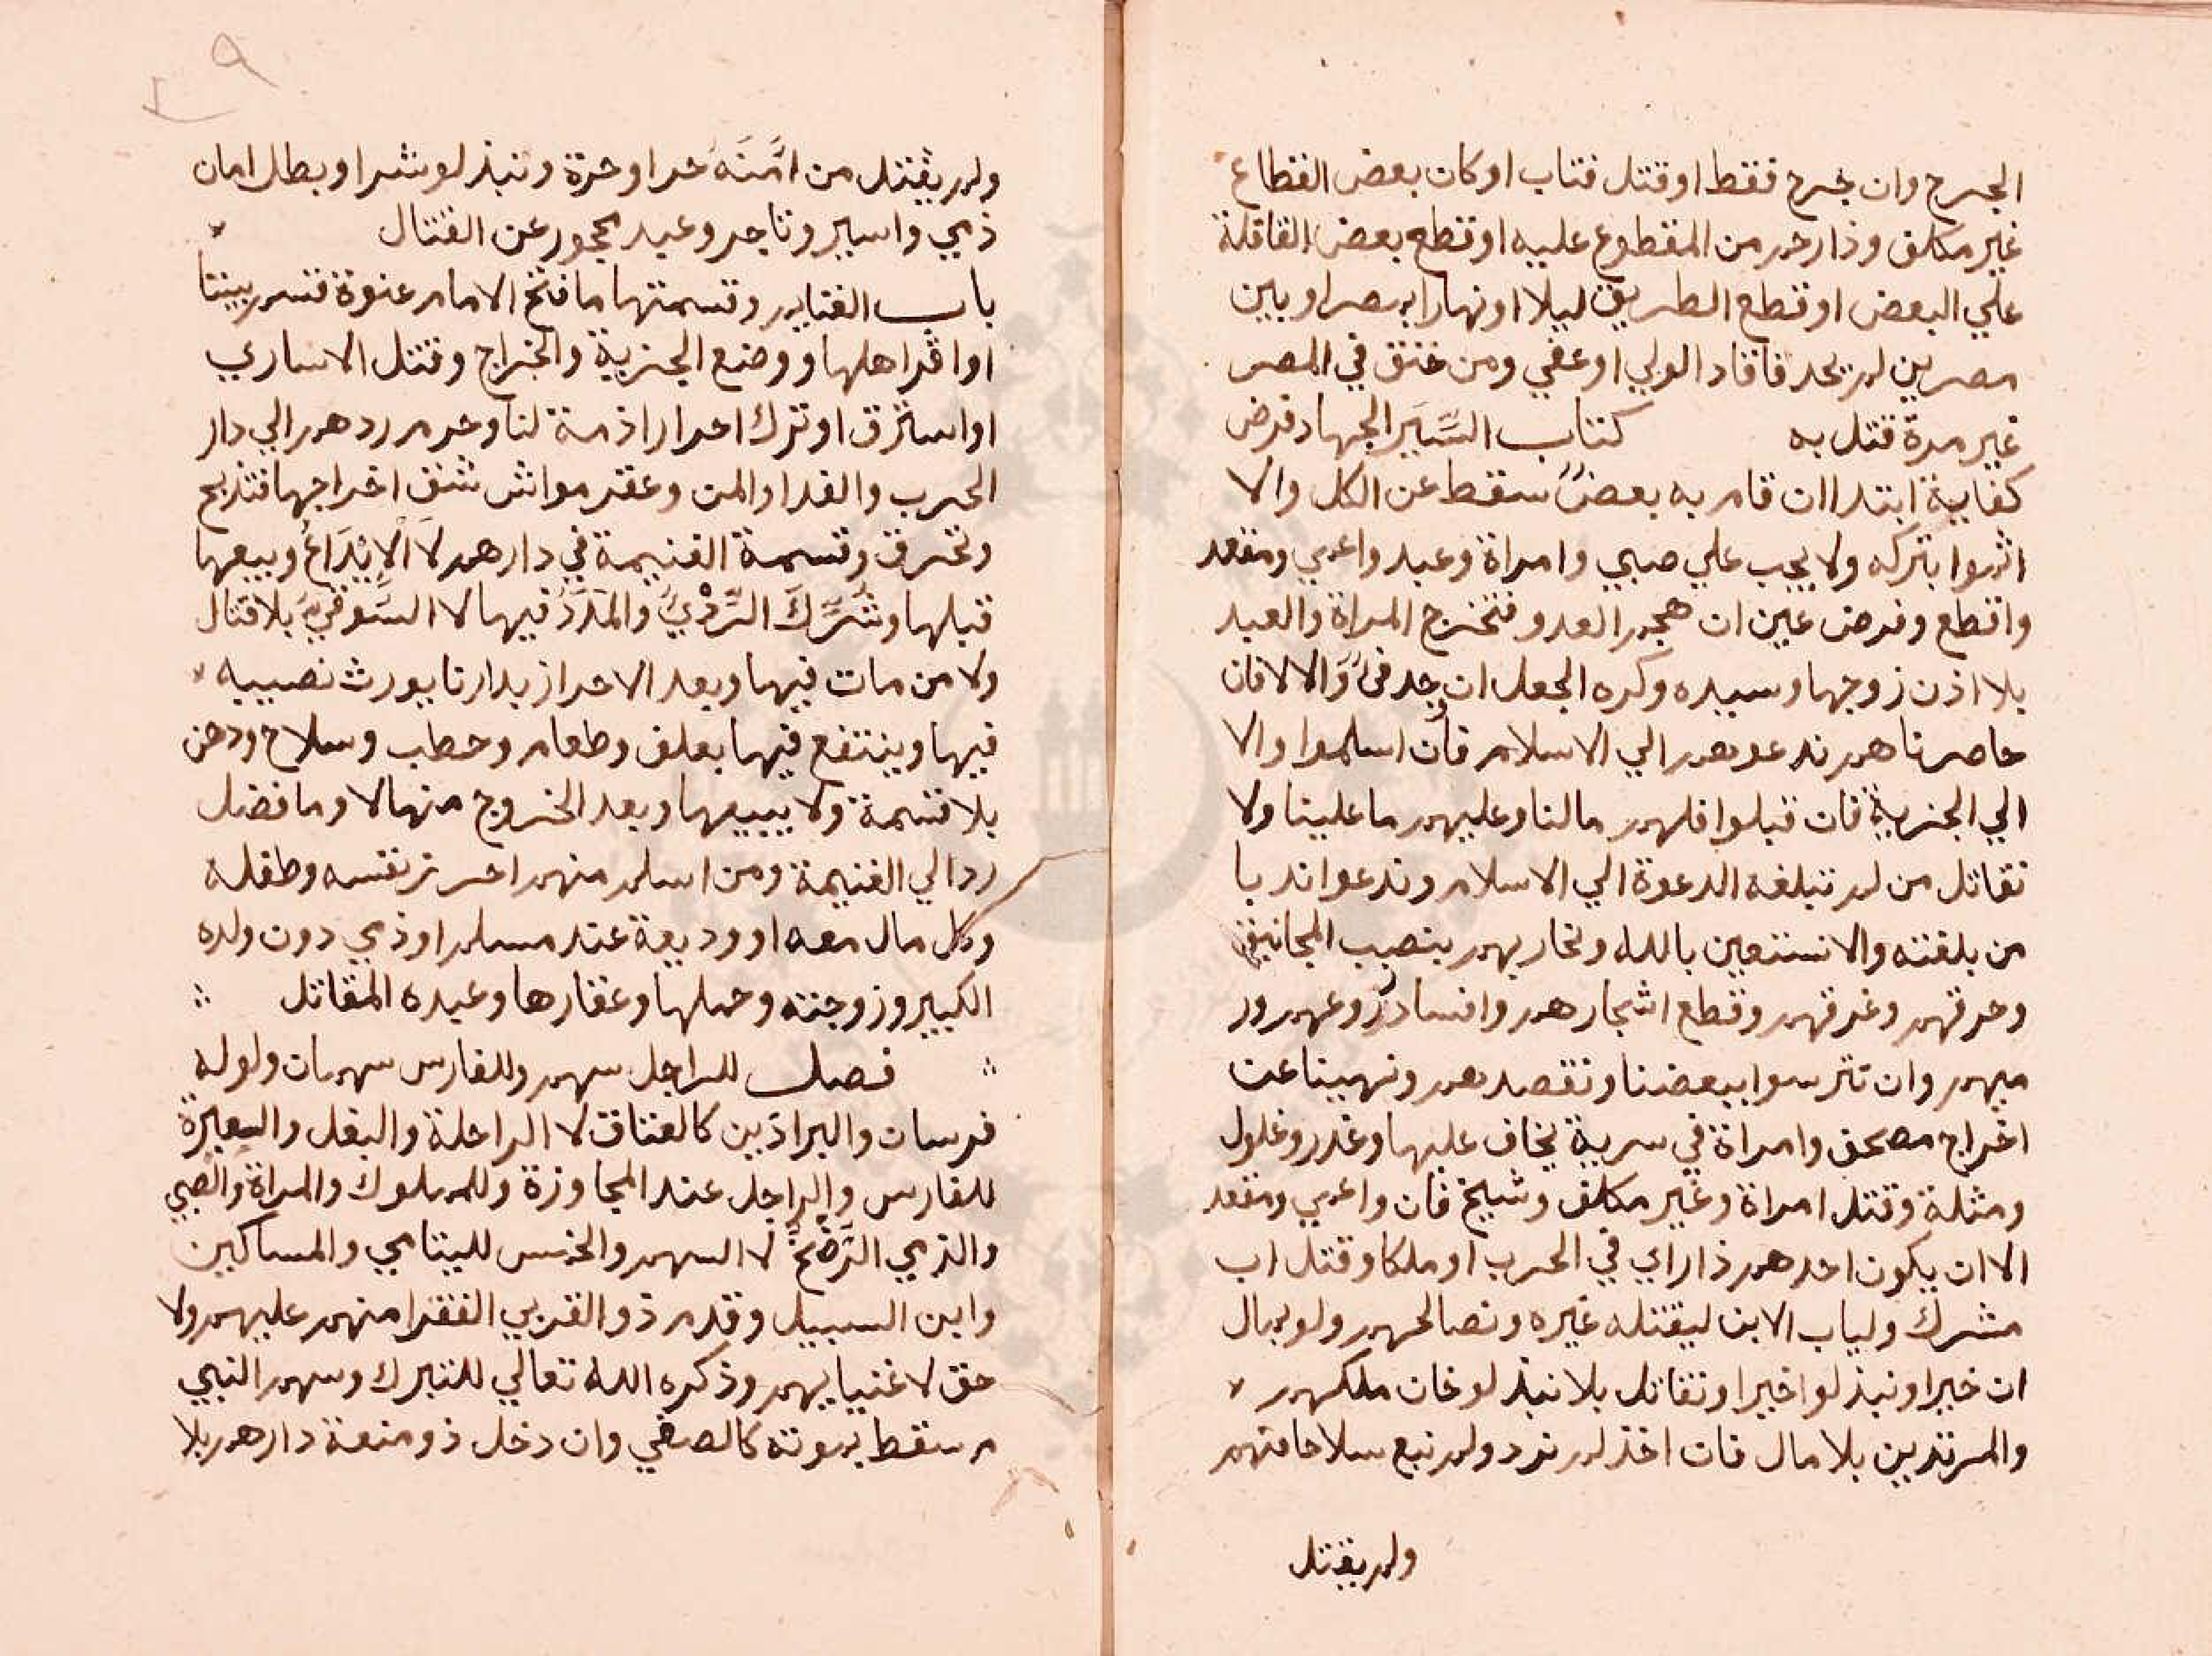 الجرح وان جرح فقط او قتل فتاب او كان بعض القطاع
غير مكلف وذا رحم من المقطوع عليه او قطع بعض القافلة
علي البعض او قطع الطريق ليلا او نهارا بمصر او بين
مصرين لم يحد فاقاد الولي او عفي ومن خنق في المصر
غير مرة قتل به كتاب السِّيَر الجهاد فرض
كفاية ابتدا ان قام به بعضٌ سقط عن الكل والا
اثموا بتركه ولا يجب علي صبي وامراة وعبد واعمي ومقعد
واقطع وفرض عين ان هجم العدو فتخرج المراة والعبد
بلا اذن زوجها وسيده وكره الجعل ان وجد فيٌ والا لا فان
حاصرناهم ندعوهم الي الاسلام فان اسلموا والا
الي الجزية فان قبلوا فلهم مالنا وعليهم ما علينا ولا
نقاتل من لم تبلغه الدعوة الي الاسلام وندعوا ندبا
من بلغته والا نستعين بالله ونحاربهم بنصب المجانيق
وحرقهم وغرقهم وقطع اشجارهم وافساد زروعهم ور
ميهم وان تترسوا ببعضنا ونقصدهم ونهينا عن
اخراج مصحف وامراة في سرية يخاف عليها وغدر وغلول
ومثلة وقتل امراة وغير مكلف وشيخ فان واعمي ومقعد
الا ان يكون احدهم ذا راي في الحرب او ملكا وقتل اب
مشرك ولياب الابن ليقتله غيره ونصالحهم ولو بمال
ان خيرا ونبذ لو اخيرا ونقاتل بلا نبذ لو خان ملكهم
والمرتدين بلا مال فان اخذ لم نرد ولم نبع سلاحا منهم
ولم يقتل
٢٩
ولم يقتل من امَّنَه حر او حرة ونبذ لو شرا وبطل امان
ذمي واسير وتاجر وعبد محجور عن القتال
باب الغنايم وقسمتها ما فتح الامام عنوة قسم بيننا
او اقر اهلها ووضع الجزية والخراج وقتل الاساري
او استرق او ترك احرارا ذمة لنا وحرم ردهم الي دار
الحرب والفدا والمن وعقر مواش شق اخراجها فتذبح
وتحرق وقسمة الغنيمة في دارهم لا الايداع وبيعها
قبلها وشرك الردي والمدد فيها لا السوقي بلا قتال
ولا من مات فيها وبعد الاحراز بدارنا يورث نصيبه
فيها وينتفع فيها بعلف وطعام وحطب وسلاح ودهن
بلا قسمة ولا يبيعها وبعد الخروج منها لا وما فضل
رد الي الغنيمة ومن اسلم منهم احرز نفسه وطفله
وكل مال معه او وديعة عند مسلم او ذمي دون ولده
الكبير وزوجته وحملها وعقارها وعبده المقاتل
فصل للراجل سهم وللفارس سهمان ولو له
فرسان والبراذين كالعتاق لا الراحلة والبغل والعبرة
للفارس والراجل عند المجاوزة وللمملوك والمراة والصبي
والذمي الرَّضْخُ لا السهم والخمس لليتامي والمساكين
وابن السبيل وقدم ذو القربي الفقرا منهم عليهم ولا
حق لاغنيايهم وذكره الله تعالي للتبرك وسهم النبي
م سقط بموته كالصفي وان دخل ذو منعة دارهم بلا